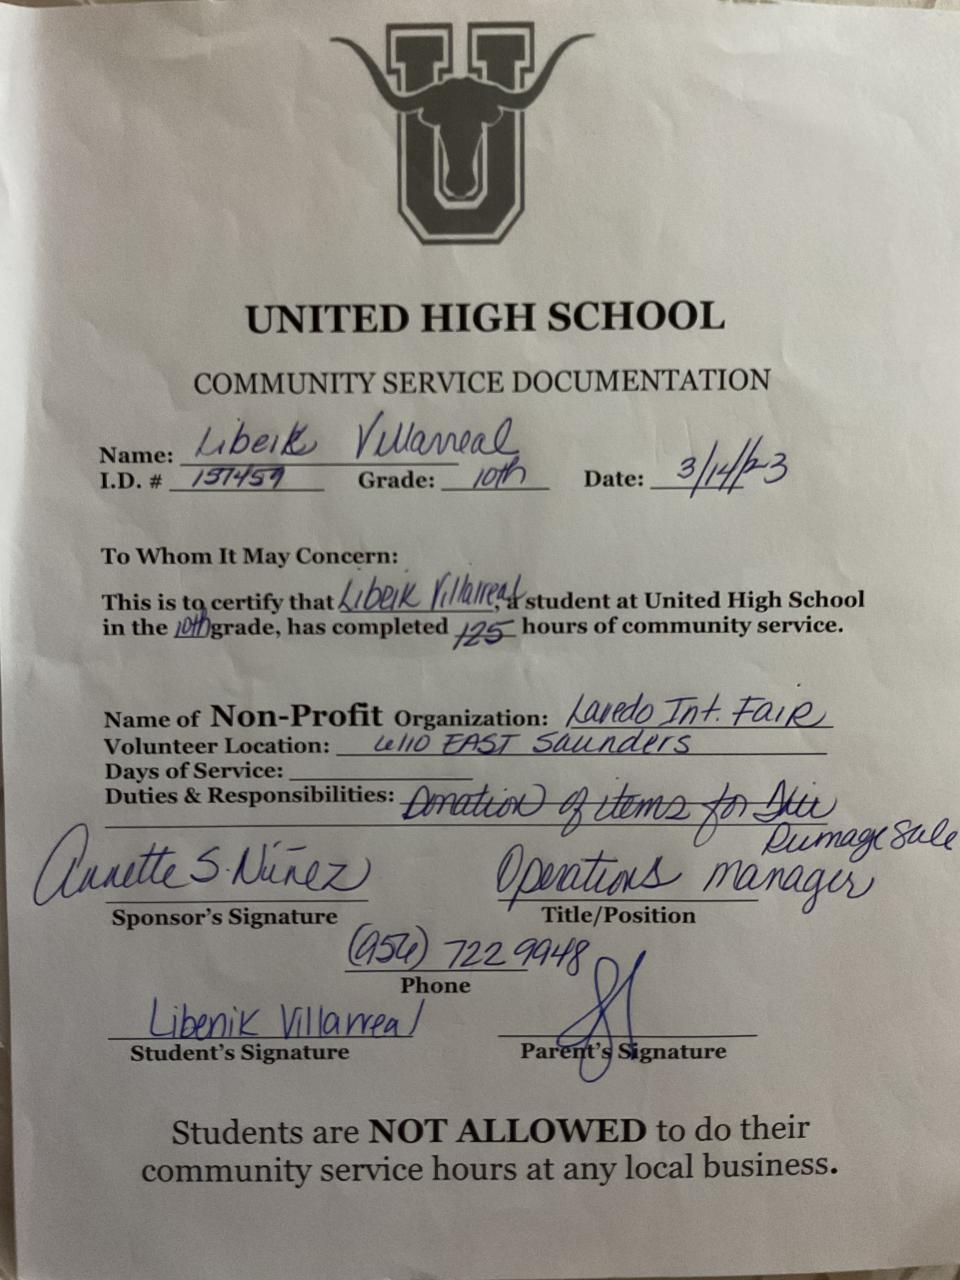 U
UNITED HIGH SCHOOL
COMMUNITY SERVICE DOCUMENTATION
Name: Libeik Villarreal
I.D. # 157459 Grade: 10th Date: 3/14/23
To Whom It May Concern:
This is to certify that Libeik Villarreal, a student at United High School
in the 10th grade, has completed 125 hours of community service.
Name of Non-Profit Organization: Laredo Int. FAIR
Volunteer Location: EAST Saunders
Days of Service:
Duties & Responsibilities: Donation of items for
Rumage Sale
Annette S. Núñez Operations manager
Sponsor's Signature Title/Position
(956) 722 9948
Phone
Libenik Villarreal
Student's Signature Parent's Signature
Students are NOT ALLOWED to do their
community service hours at any local business.